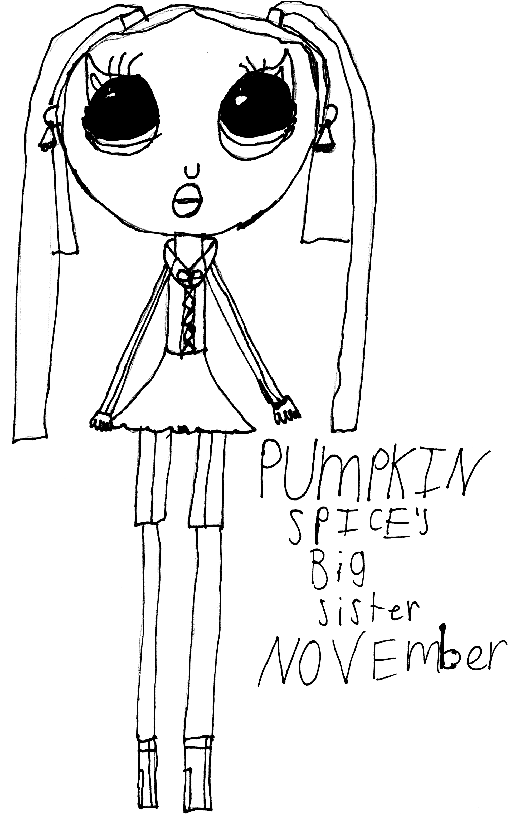 PUMPKIN
SPICE'S
Big
sister
NOVEmber